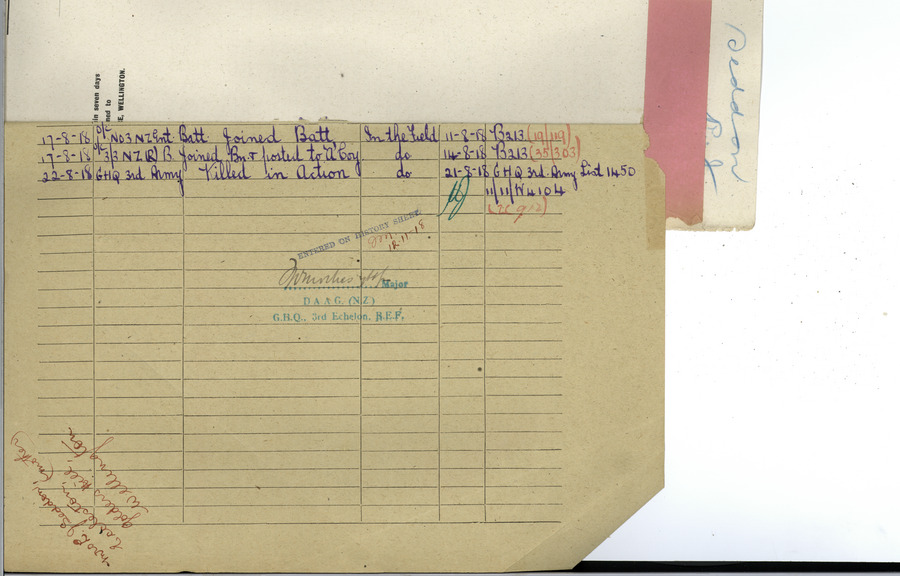 in seven days
ned to
E, WELLINGTON.
Seddon
R. J.
17-8-18 O/C No 3 NZ Ent. Batt Joined Batt, In the Field 11-8-18 B213 (19/119)
17-8-18 O/C 3/3 NZ (R) B Joined Bn & posted to "A" Coy. do 14-8-18 B213 (35/303)
22-8-18 GHQ 3rd Army Killed in Action do 21-8-18 GHQ 3rd Army List 1450
11/11/N4104
ENTERED ON HISTORY SHEET
12-11-18
Major
D A A G. (N.Z)
G.H.Q., 3rd Echelon, B.E.F.
Seddon,
(mother)
Wellington